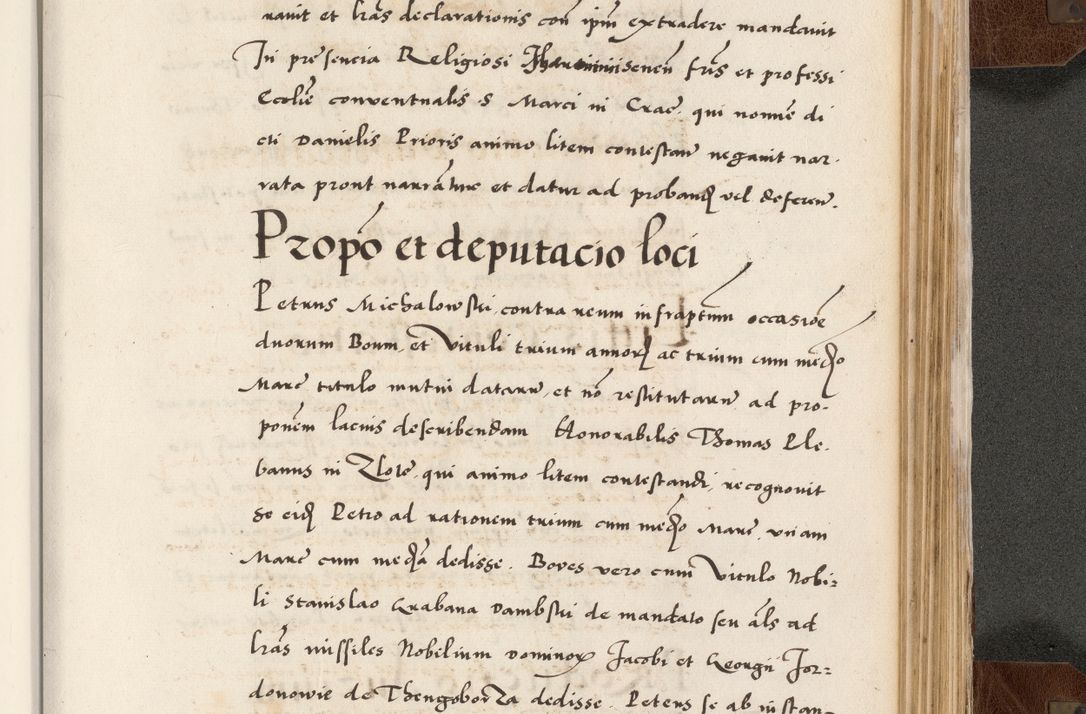 rauit et lras declarationis con ipm extradere mandauit
In presencia Religiosi fris et professi
Ecclie conventualis S Marci in Crac. qui nomie di
cti Danielis Prioris animo litem contestan negauit nar-
rata prout narrantur et datur ad proband vel deferen.
Propo et deputacio loci
Petrus Michalowski contra reum infrascriptum occasioe
duorum Boum, et Vituli trium annor ac trium cum medio
Marc titulo mutui datarum, et no restitutarum ad pro-
ponem lacius describendam Honorabilis Thomas Ple-
banus in Zlote, qui animo litem contestandi, recognovit
se eid Petro ad rationem trium cum medio Marc, unam
Marc cum media dedisse. Boves vero cum Vitulo Nobi-
li Stanislao Grabana Dambski de mandato seu als ad
lras missiles Nobilium Dominor Jacobi et Georgii Jor-
donowie de Thengoborza dedisse. Petens se ab instan-